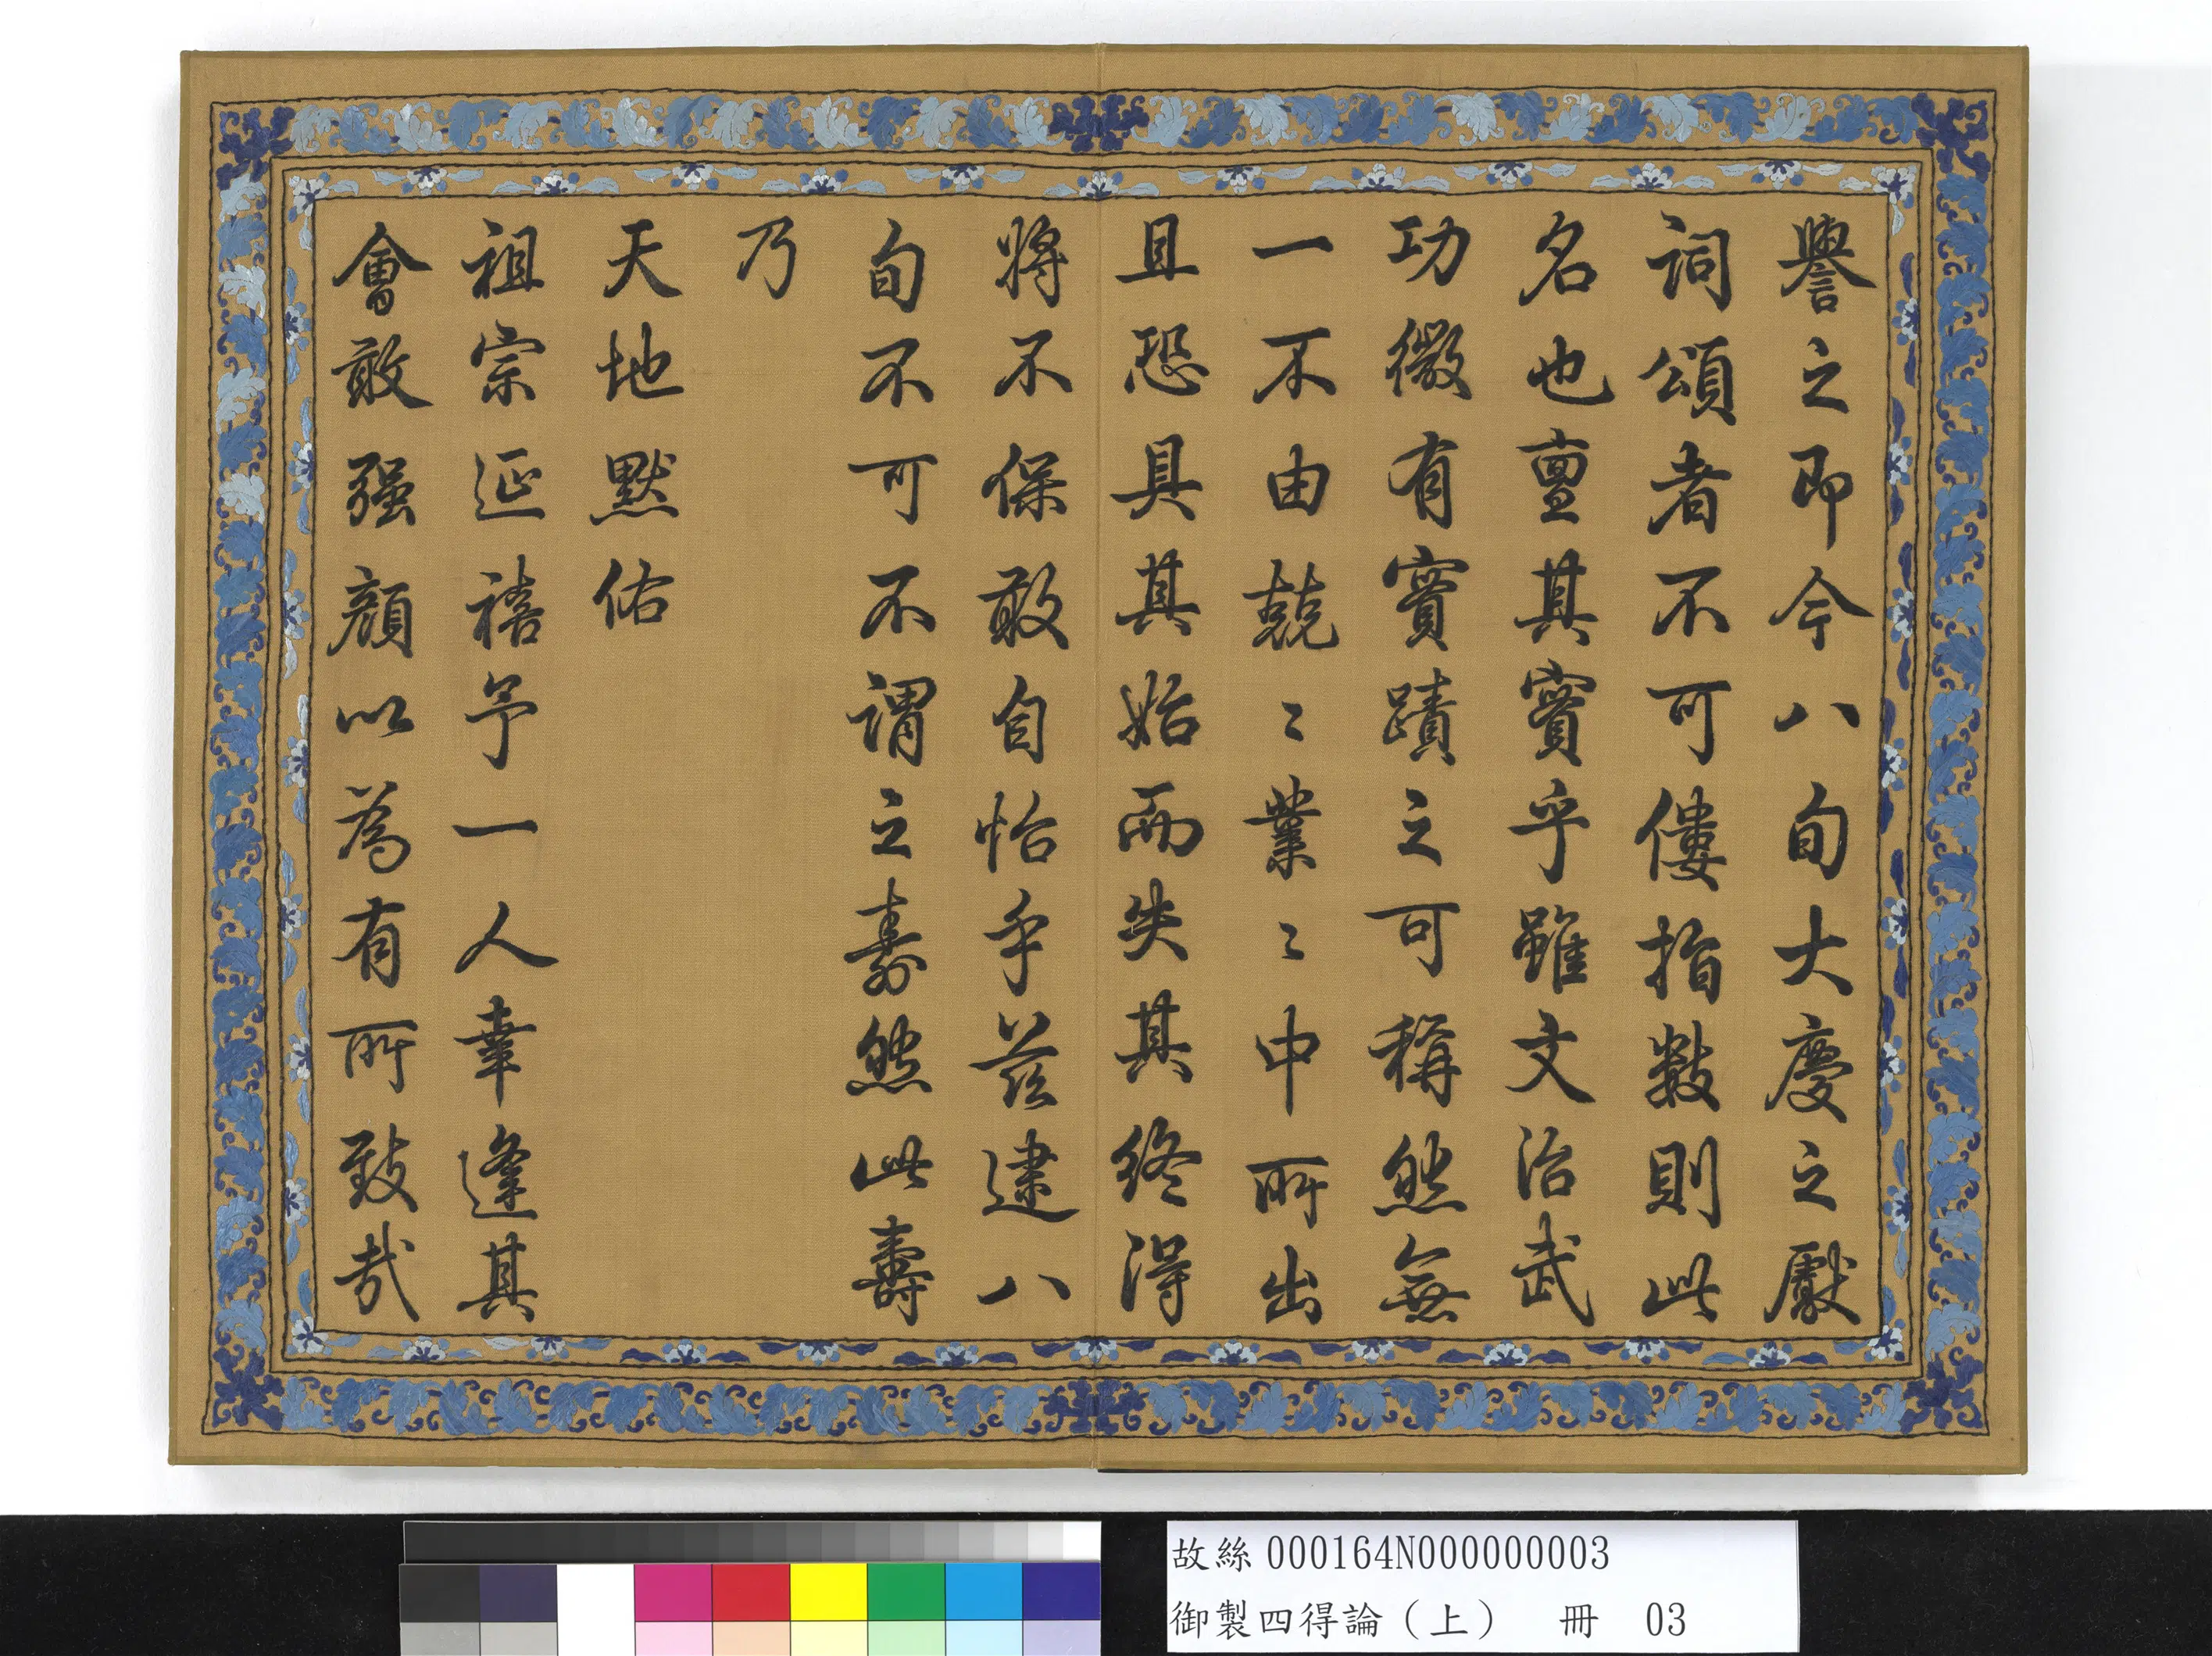 譽之即今八旬大慶之獻
詞頌者不可僂指數則此
名也亶其實乎雖文治武
功微有實蹟之可稱然無
一不由兢〻業〻中所出
且恐具其始而失其終得
將不保敢自怡乎茲逮八
旬不可不謂之壽然此壽
乃
天地默佑
祖宗延禧予一人幸逢其
會敢强顏以為有所致哉
故絲000164N000000003
御製四得論(上) 冊 03